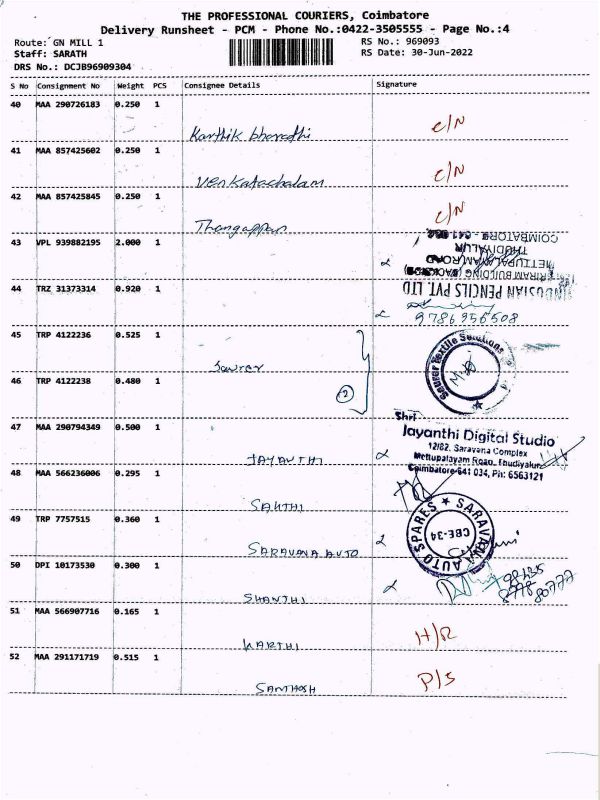 THE PROFESSIONAL COURIERS, Coimbatore
Delivery Runsheet - PCM - Phone No.:0422-3505555 - Page No.:4
Route: GN MILL 1
RS No.: 969093
Staff: SARATH
RS Date: 30-Jun-2022
DRS No.: DCJB96909304
S No Consignment No Weight PCS Consignee Details Signature
40 MAA 290726183 0.250 1
Karthik bharathi C/N
41 MAA 857425602 0.250 1
Venkatachalam C/N
42 MAA 857425845 0.250 1
Thangappan C/N
43 VPL 939882195 2.000 1
COIMBATORE - 641 034
THUDIYALUR
METTUPALAYAM ROAD
SRIRAM BUILDING (BACKSIDE)
HINDUSTAN PENCILS PVT. LTD
44 TRZ 31373314 0.920 1
9786956508
45 TRP 4122236 0.525 1
Saurer
Saurer Textile Solutions
46 TRP 4122238 0.480 1
2
47 MAA 290794349 0.500 1
JAYANTHI
Shri
Jayanthi Digital Studio
12/82, Saravana Complex
Mettupalayam Road, Thudiyalur
Coimbatore-641 034, Ph: 6563121
48 MAA 566236006 0.295 1
SAKTHI
49 TRP 7757515 0.360 1
SARAVANA AUTO
SARAVANA AUTO SPARES
CBE-34
50 DPI 10173530 0.300 1
SHANTHI
51 MAA 566907716 0.165 1
KARTHI H/R
52 MAA 291171719 0.515 1
SANTHOSH P/S